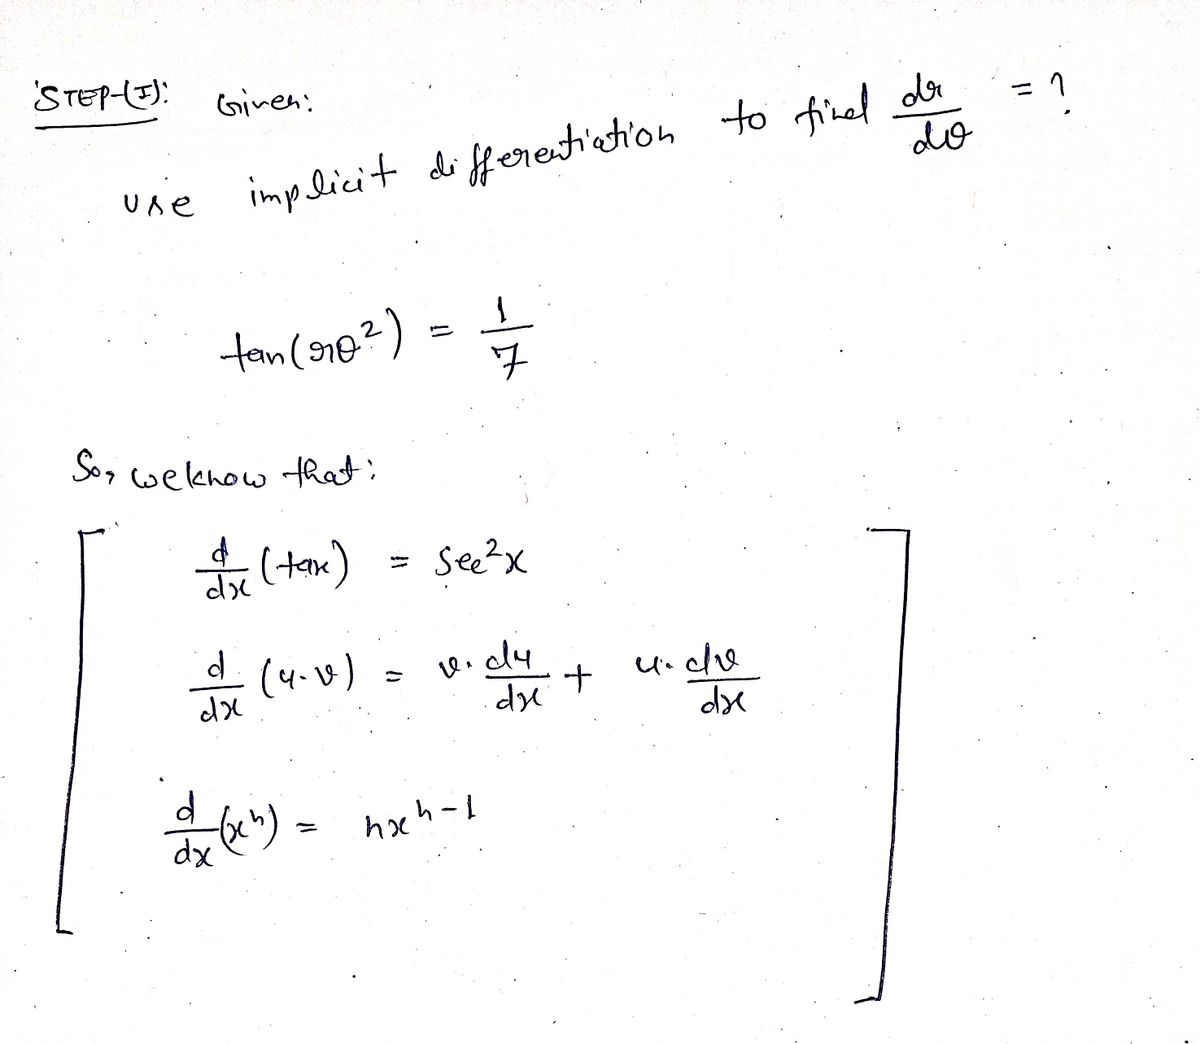 STEP-(I): Given:
use implicit differentiation to find dr/dθ = ?
tan(rθ²) = 1/7
So, we know that:
d/dx (tax) = sec²x
d/dx (u·v) = v· du/dx + u· dv/dx
d/dx (xⁿ) = nxⁿ⁻¹